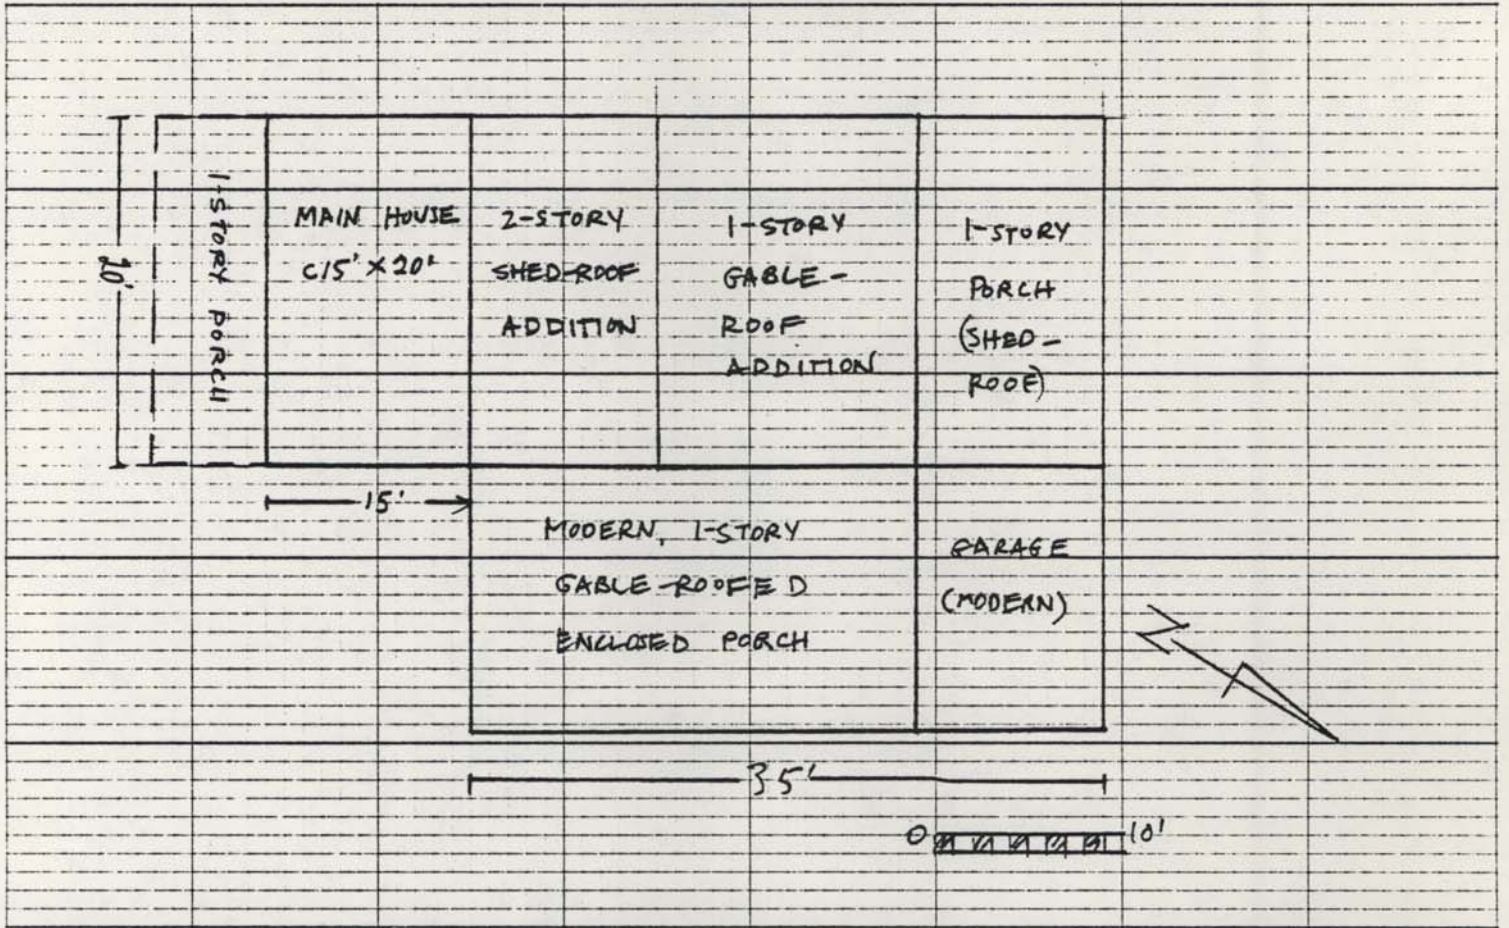 20'
1-STORY PORCH
MAIN HOUSE
C15' X 20'
2-STORY
SHED-ROOF
ADDITION
1-STORY
GABLE-
ROOF
ADDITION
1-STORY
PORCH
(SHED-
ROOF)
15'
MODERN, 1-STORY
GABLE-ROOFED
ENCLOSED PORCH
GARAGE
(MODERN)
N
35'
0 10'